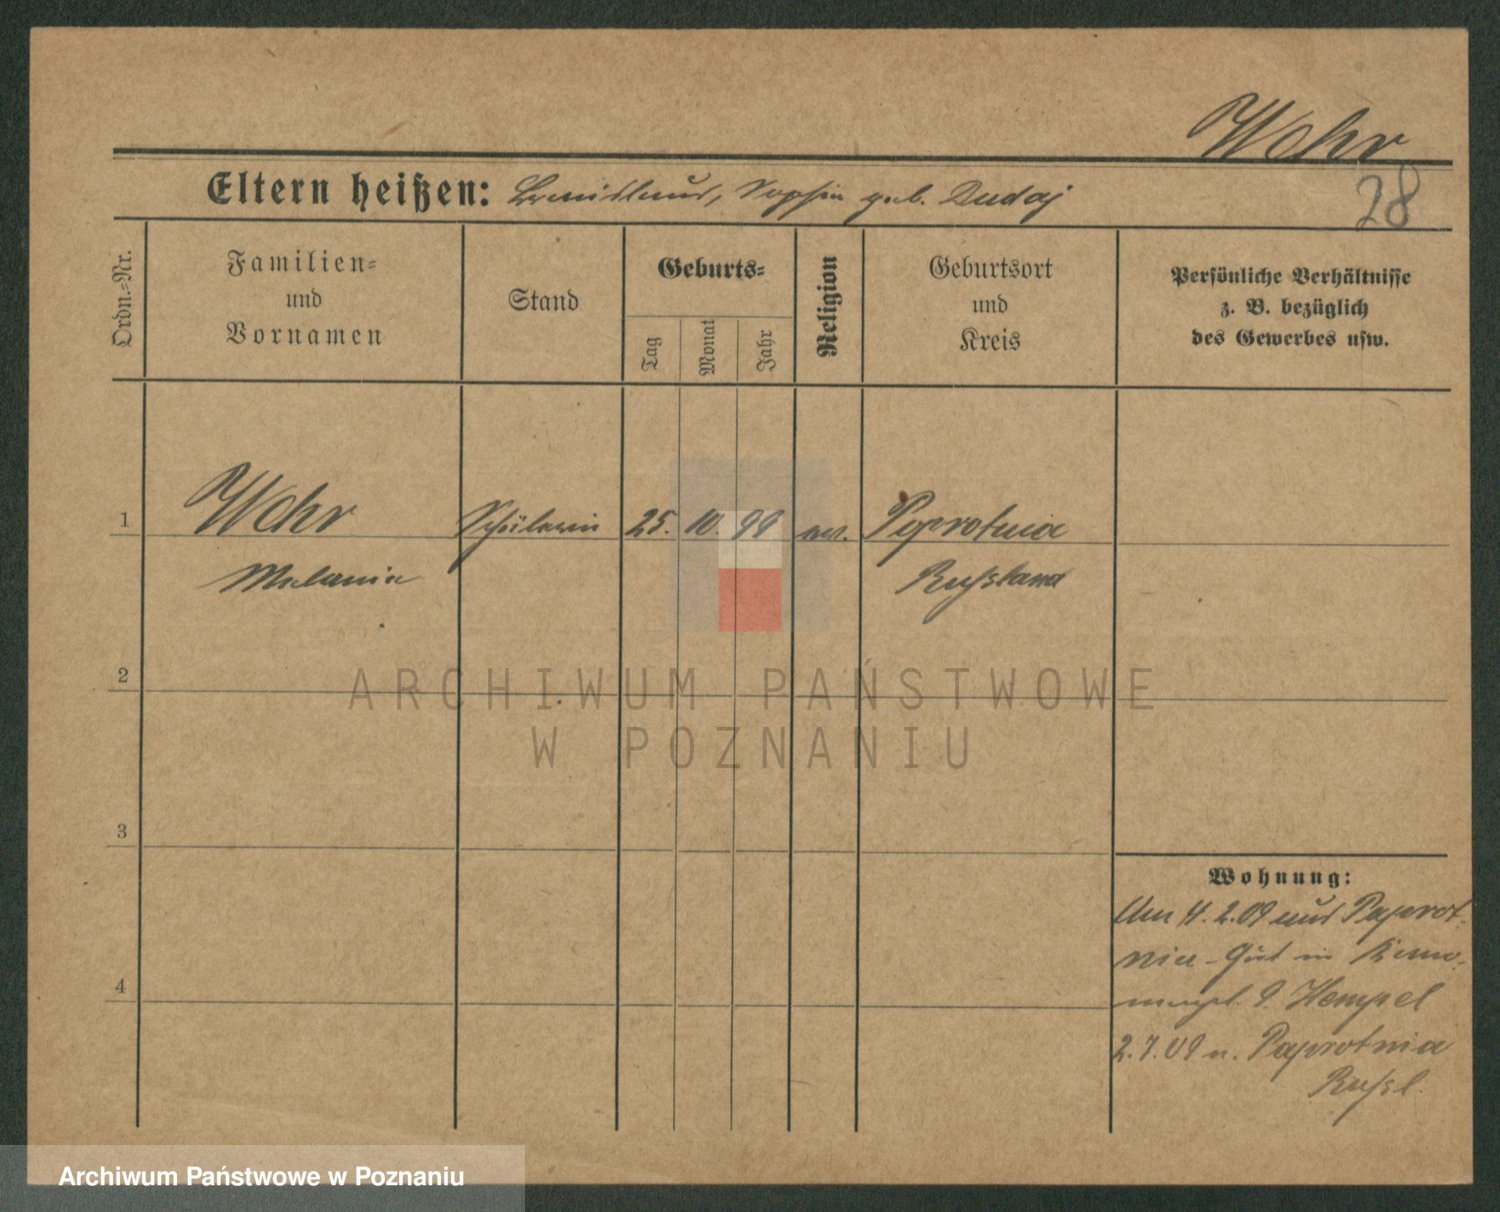 Wehr
28
Eltern heißen: Bronislaus, Sophia geb. Dudaj
Ordn.-Nr.
Familien-
und
Vornamen
Stand
Geburts-
Tag
Monat
Jahr
Religion
Geburtsort
und
Kreis
Persönliche Verhältnisse
z. B. bezüglich
des Gewerbes usw.
1
Wehr
Schülerin
25. 10. 98
Paprotnia
Melania
Rußland
2
ARCHIWUM PAŃSTWOWE
W POZNANIU
3
Wohnung:
Am 4. 2. 09 aus Paprot-
nia-Gut in
Hempel
4
2. 7. 09 n. Paprotnia
Rußl.
Archiwum Państwowe w Poznaniu